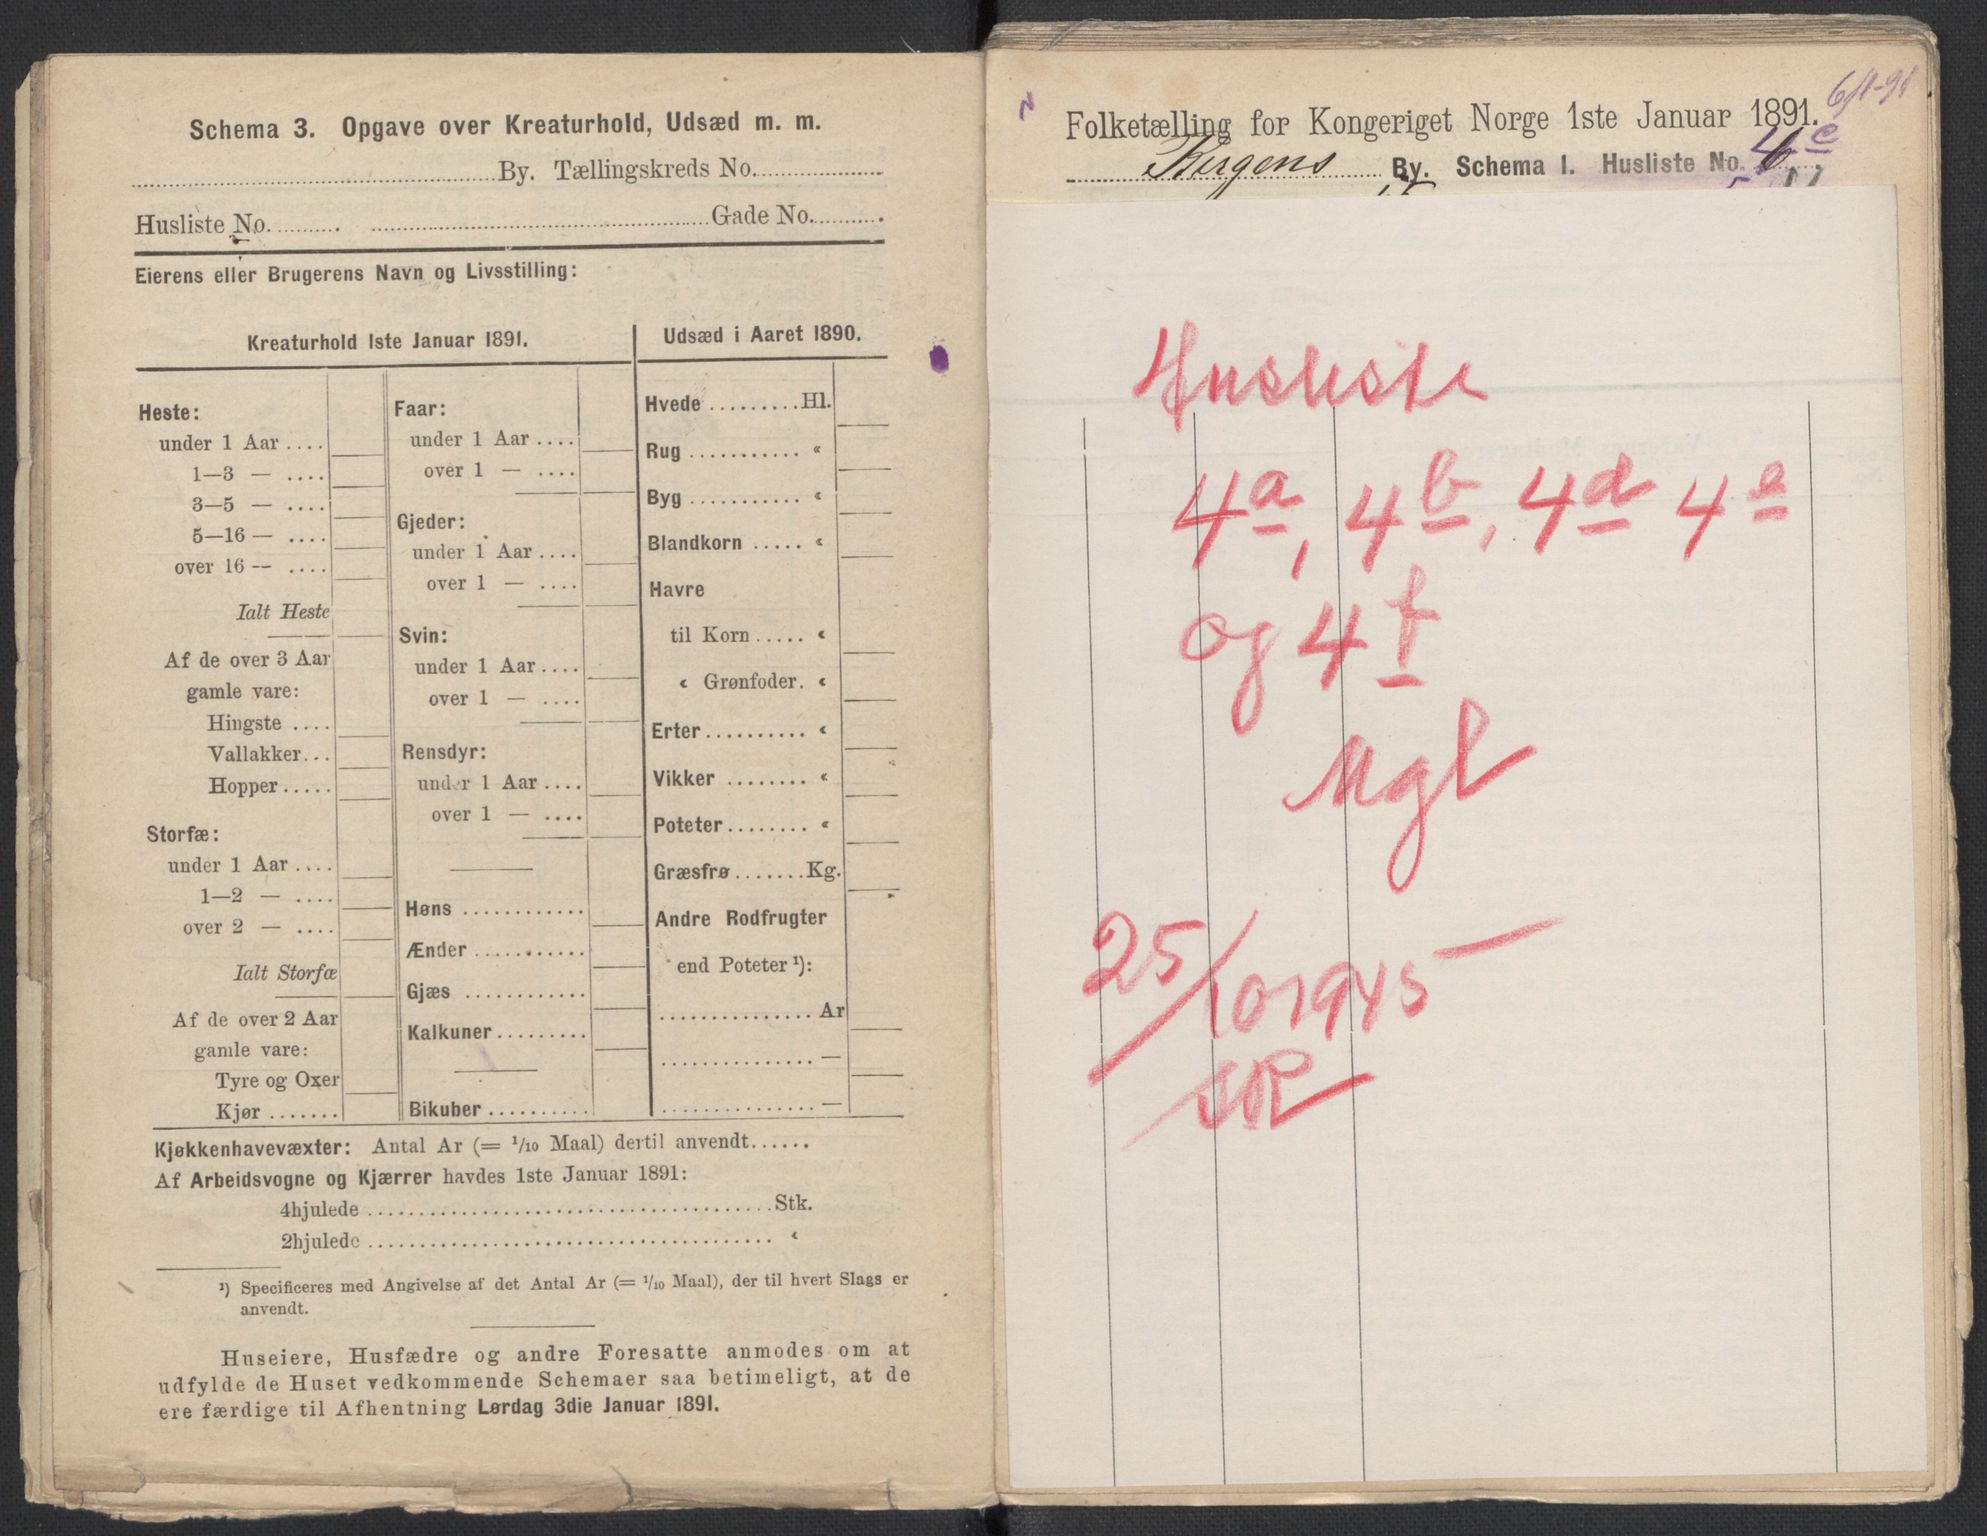 Schema 3. Opgave over Kreaturhold, Udsæd m. m.
By. Tællingskreds No.
Husliste No. Gade No.
Eierens eller Brugerens Navn og Livsstilling:
Kreaturhold 1ste Januar 1891.
Heste:
under 1 Aar ....
1—3 — ....
3—5 — ....
5—16 — ....
over 16 — ....
Ialt Heste
Af de over 3 Aar
gamle vare:
Hingste ....
Vallakker...
Hopper.....
Storfæ:
under 1 Aar ....
1—2 — ....
over 2 — ....
Ialt Storfæ
Af de over 2 Aar
gamle vare:
Tyre og Oxer
Kjør .......
Faar:
under 1 Aar ....
over 1 — ....
Gjeder:
under 1 Aar ....
over 1 — ....
Svin:
under 1 Aar ....
over 1 — ....
Rensdyr:
under 1 Aar ....
over 1 — ....
Høns ............
Ænder ...........
Gjæs ............
Kalkuner.........
Bikuber ..........
Udsæd i Aaret 1890.
Hvede .........Hl.
Rug ........... «
Byg ........... «
Blandkorn ..... «
Havre
til Korn ..... «
« Grønfoder. «
Erter.......... «
Vikker ........ «
Poteter........ «
Græsfrø.......Kg.
Andre Rodfrugter
end Poteter ¹):
............... Ar
............... —
............... —
Kjøkkenhavevæxter: Antal Ar (= 1/10 Maal) dertil anvendt......
Af Arbeidsvogne og Kjærrer havdes 1ste Januar 1891:
4hjulede ........................................Stk.
2hjulede ........................................ «
¹) Specificeres med Angivelse af det Antal Ar (= 1/10 Maal), der til hvert Slags er
anvendt.
Huseiere, Husfædre og andre Foresatte anmodes om at
udfylde de Huset vedkommende Schemaer saa betimeligt, at de
ere færdige til Afhentning Lørdag 3die Januar 1891.
6/1-91
Folketælling for Kongeriget Norge 1ste Januar 1891.
Bergens By. Schema I. Husliste No. 4 c
Husliste
4a, 4b, 4d 4e
og 4f
Mgl
25/10 1945